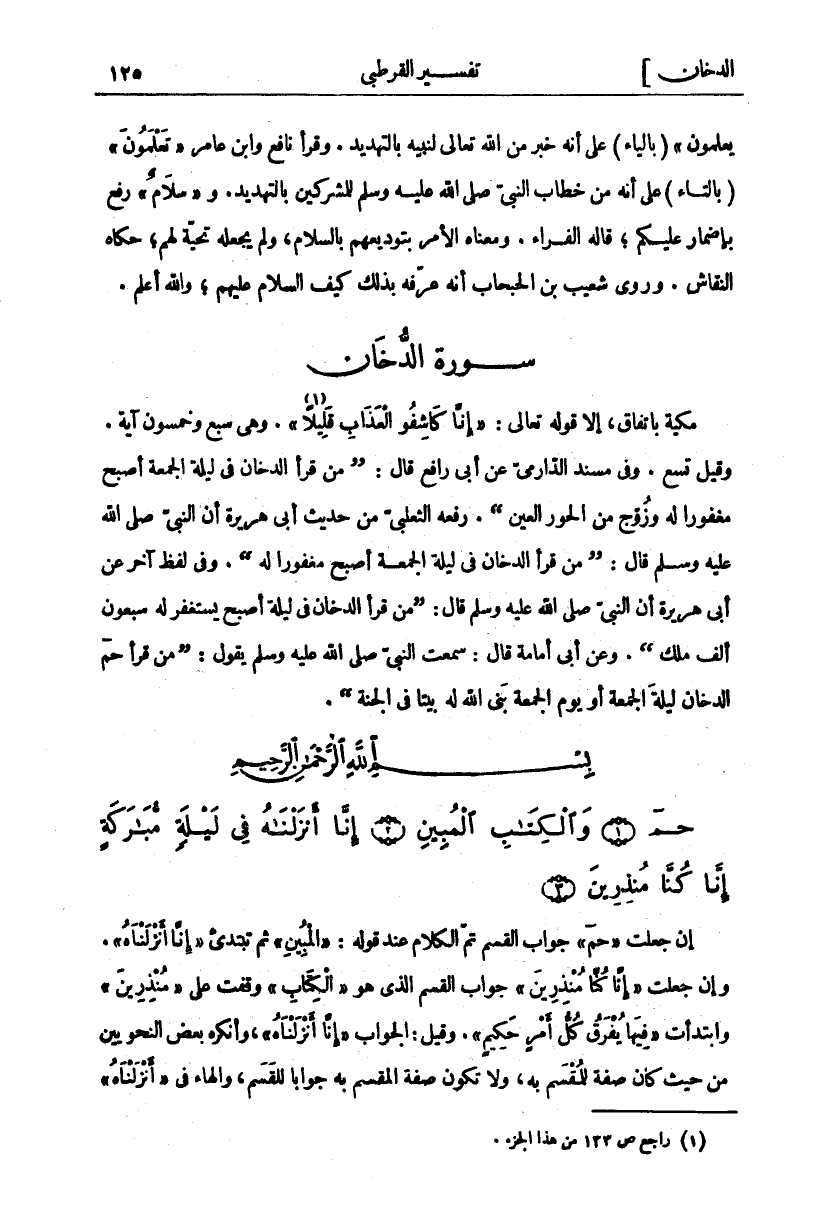 الدخان ] تفسير القرطبى ١٢٥
يعلمون» (بالياء) على أنه خبر من الله تعالى لنبيه بالتهديد . وقرأ نافع وابن عامر «تَعْلَمُونَ»
(بالتاء) على أنه من خطاب النبىّ صلى الله عليه وسلم للمشركين بالتهديد. و «سلَامٌ» رفع
بإضمار عليكم ؛ قاله الفراء . ومعناه الأمر بتوديعهم بالسلام، ولم يجعله تحيّة لهم؛ حكاه
النقاش . وروى شعيب بن الحبحاب أنه عرّفه بذلك كيف السلام عليهم ؛ والله أعلم .
سورة الدُّخَان
مكية باتفاق، إلا قوله تعالى : «إِنَّا كَاشِفُو الْعَذَابِ قَلِيلًا(١)» . وهى سبع وخمسون آية .
وقيل تسع . وفى مسند الدّارمىّ عن أبى رافع قال : ”من قرأ الدخان فى ليلة الجمعة أصبح
مغفورا له وزُوّج من الحور العين“ . رفعه الثعلبىّ من حديث أبى هريرة أن النبىّ صلى الله
عليه وسلم قال : ”من قرأ الدخان فى ليلة الجمعة أصبح مغفورا له“ . وفى لفظ آخر عن
أبى هريرة أن النبىّ صلى الله عليه وسلم قال: ”من قرأ الدخان فى ليلة أصبح يستغفر له سبعون
ألف ملك“ . وعن أبى أمامة قال : سمعت النبىّ صلى الله عليه وسلم يقول : ”من قرأ حمٓ
الدخان ليلةَ الجمعة أو يوم الجمعة بَنى الله له بيتا فى الجنة“ .
بِسْمِ ٱللَّهِ ٱلرَّحْمَٰنِ ٱلرَّحِيمِ
حمٓ ١ وَٱلْكِتَٰبِ ٱلْمُبِينِ ٢ إِنَّا أَنزَلْنَٰهُ فِى لَيْلَةٍ مُّبَٰرَكَةٍ
إِنَّا كُنَّا مُنذِرِينَ ٣
إن جعلت «حمٓ» جواب القسم تمّ الكلام عند قوله : «المُبِينِ» ثم تبتدئ «إِنَّا أَنْزَلْنَاهُ».
وإن جعلت «إِنَّا كُنَّا مُنْذِرِينَ» جواب القسم الذى هو «الْكِتَابِ» وقفت على «مُنْذِرِينَ»
وابتدأت «فِيهَا يُفْرَقُ كُلُّ أَمْرٍ حَكِيمٍ». وقيل: الجواب «إِنَّا أَنْزَلْنَاهُ»، وأنكره بعض النحويين
من حيث كان صفة للمُقْسَم به، ولا تكون صفة المقسم به جوابا للقَسَم، والهاء فى «أَنْزَلْنَاهُ»
(١) راجع ص ١٣٣ من هذا الجزء .